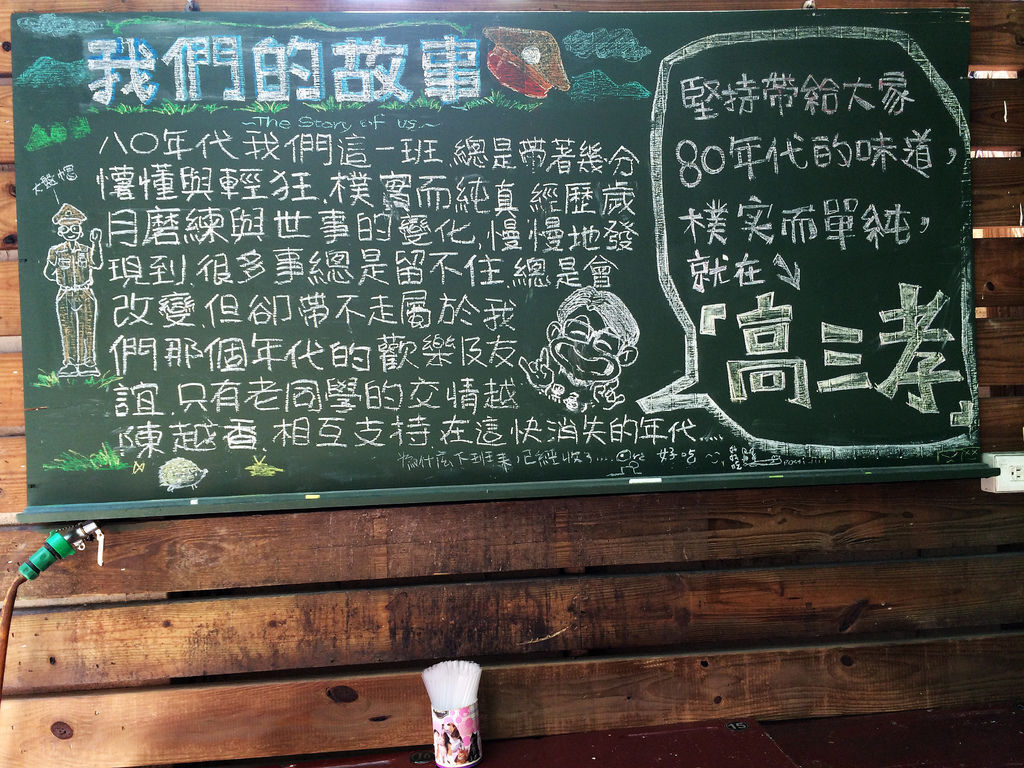 我們的故事
~The Story of us~
八〇年代我們這一班,總是帶著幾分
懵懂與輕狂,樸實而純真,經歷歲
月磨練與世事的變化,慢慢地發
現到,很多事總是留不住,總是會
改變,但卻帶不走屬於我
們那個年代的歡樂及友
誼,只有老同學的交情越
陳越香,相互支持在這快消失的年代....
大盤帽
堅持帶給大家
80年代的味道,
樸实而單純,
就在
「高三孝」
好吃~
15